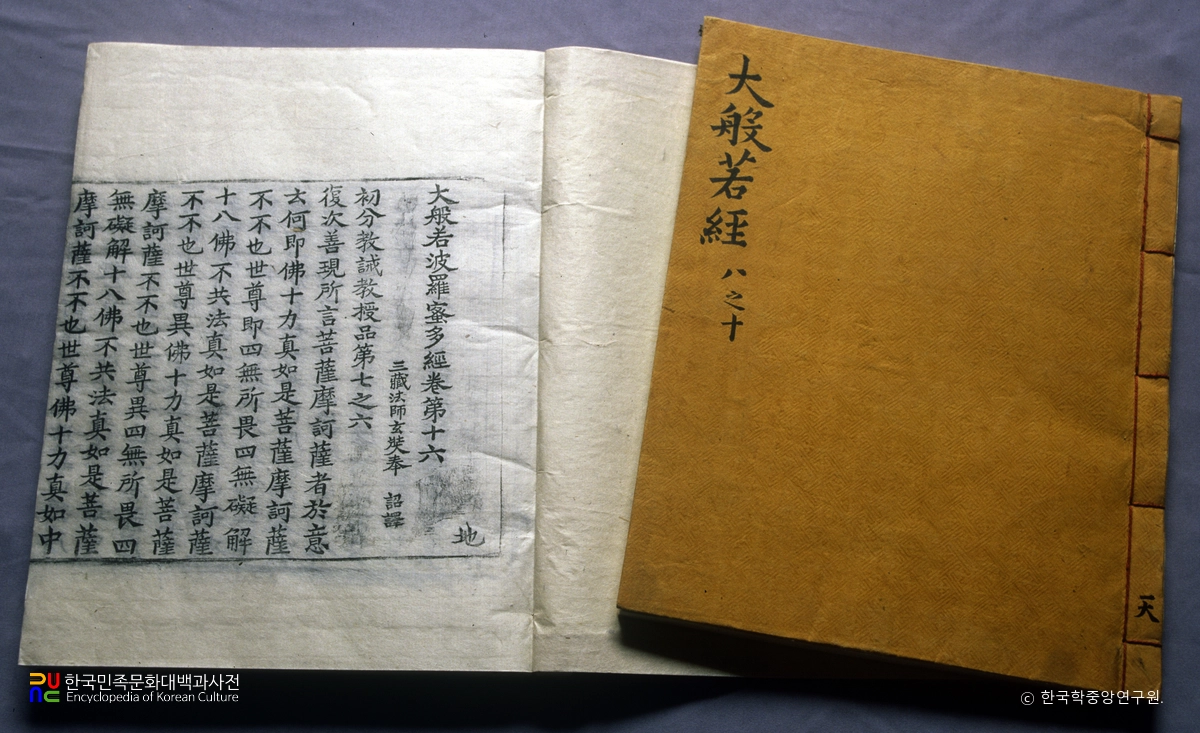 大般若波羅蜜多經卷第十六
地
三藏法師玄奘奉 詔譯
初分教誡教授品第七之六
復次善現所言菩薩摩訶薩者於意
云何即佛十力真如是菩薩摩訶薩
不不也世尊即四無所畏四無礙解
十八佛不共法真如是菩薩摩訶薩
不不也世尊異佛十力真如是菩薩
摩訶薩不不也世尊異四無所畏四
無礙解十八佛不共法真如是菩薩
摩訶薩不不也世尊佛十力真如中
大般若經 八之十
天
한국민족문화대백과사전
Encyclopedia of Korean Culture
ⓒ 한국학중앙연구원.